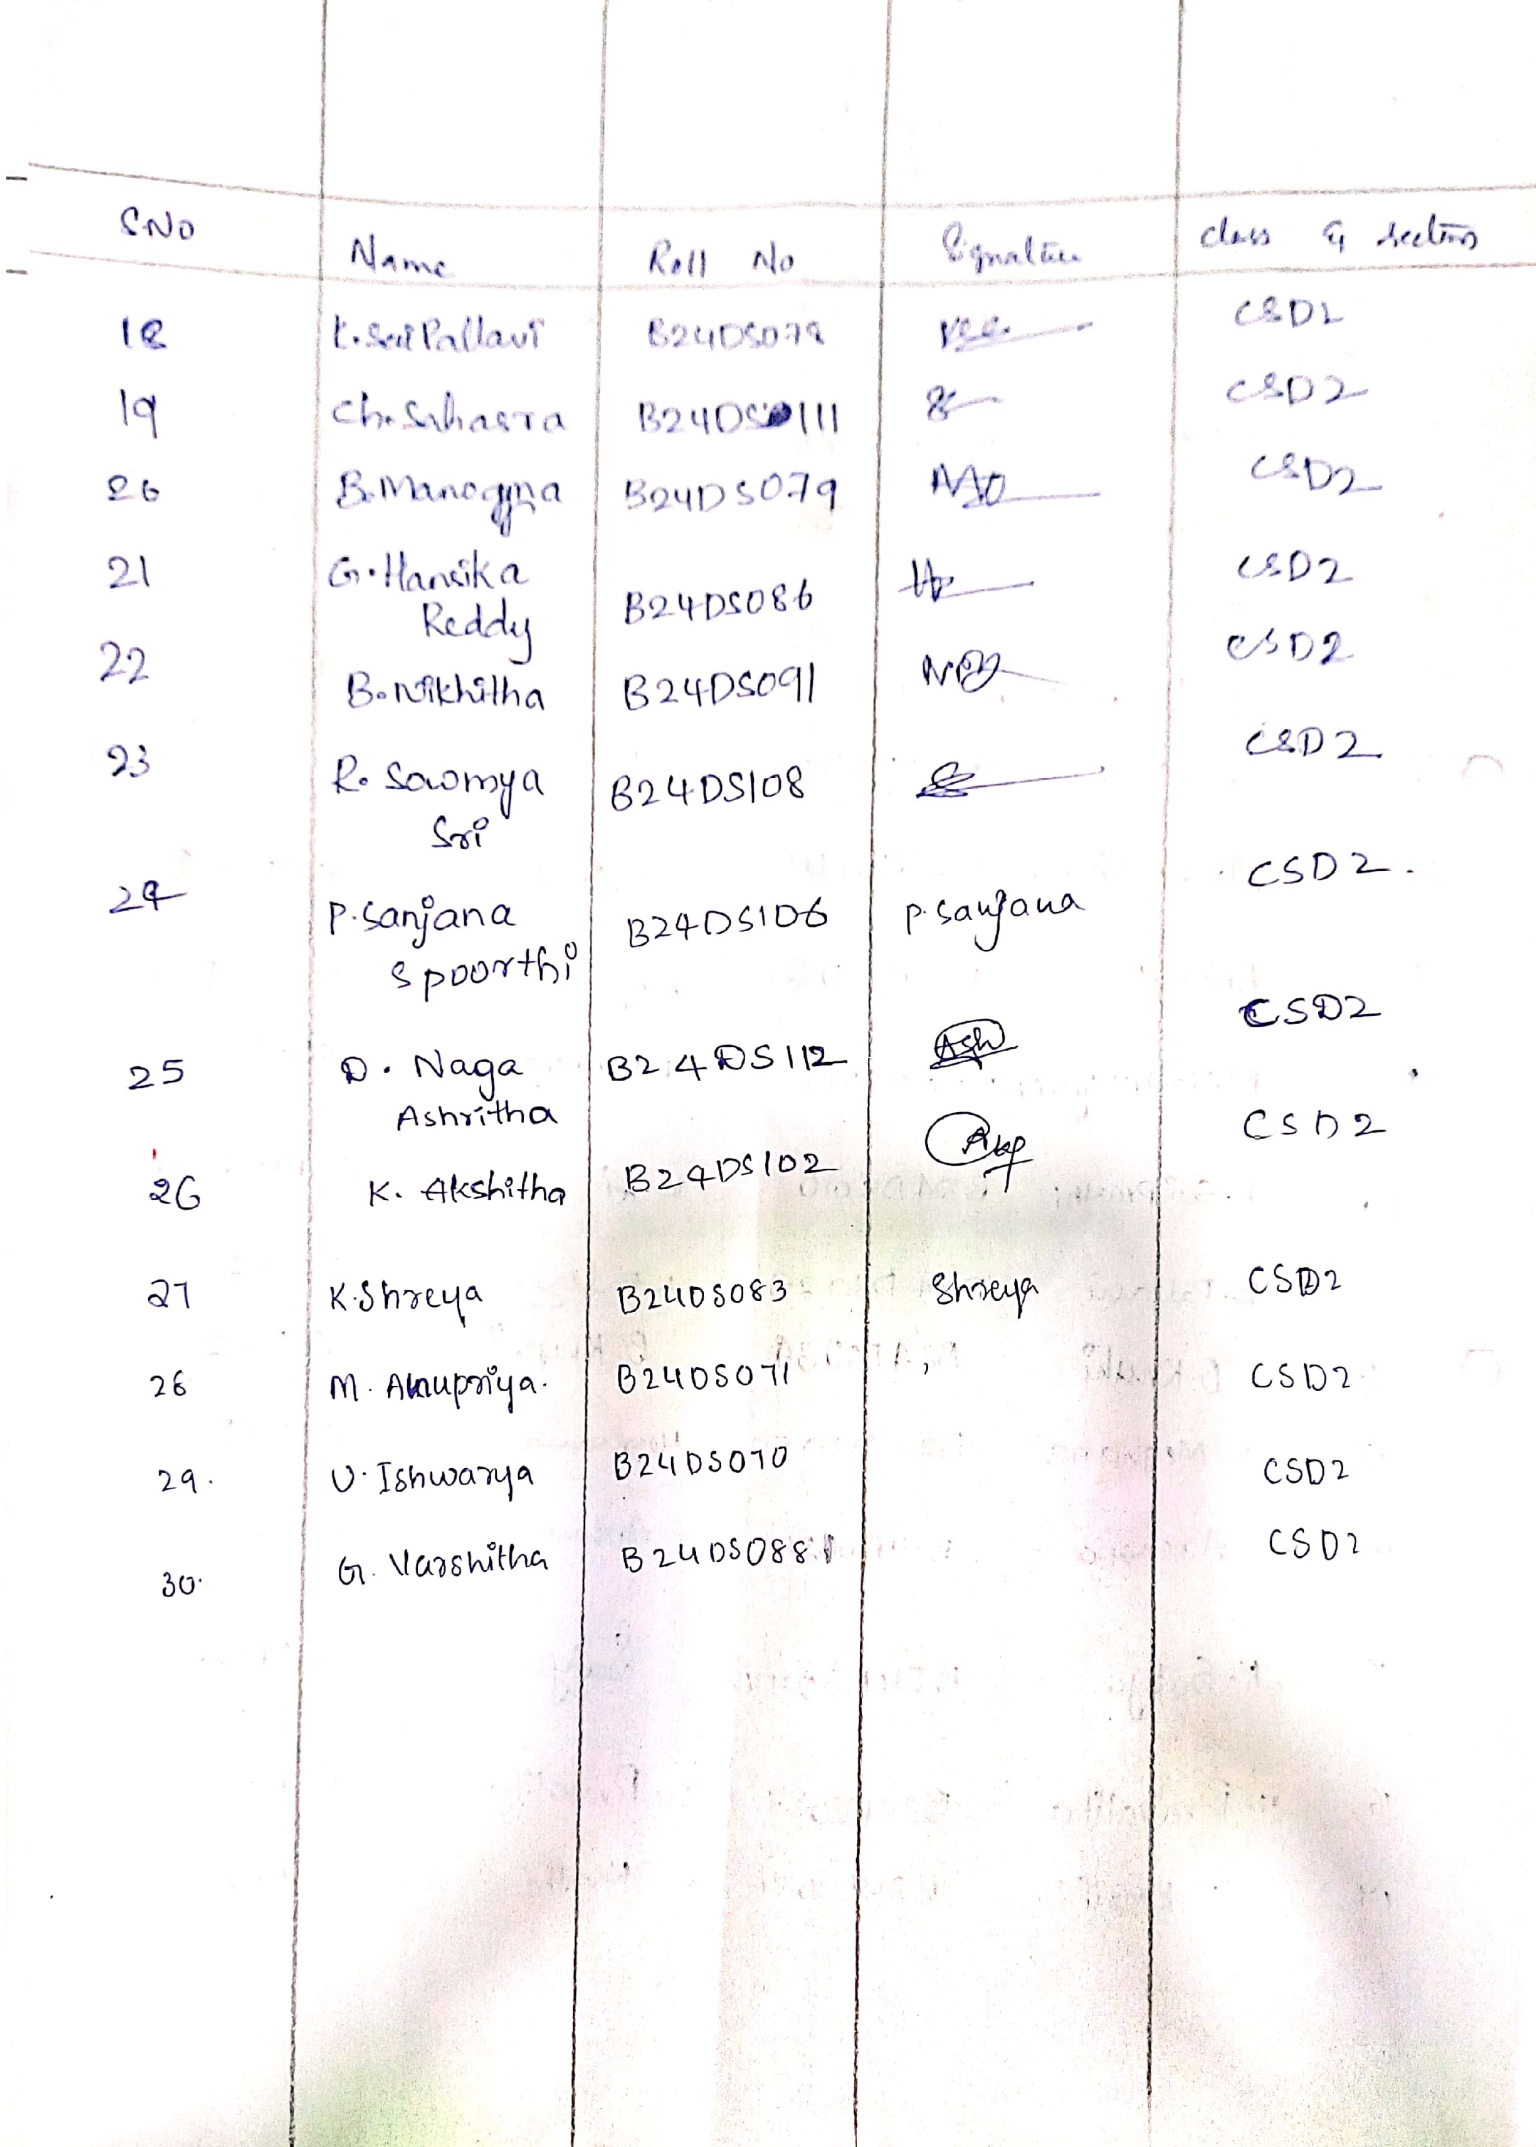 S.No Name Roll No Signature class & section
18 K. Sri Pallavi B24DS078 CSD2
19 Ch. Sahasra B24DS111 CSD2
20 B. Manogna B24DS079 CSD2
21 G. Hansika Reddy B24DS086 CSD2
22 B. Nikhitha B24DS091 CSD2
23 R. Sowmya Sri B24DS108 CSD2
24 P. Sanjana Spoorthi B24DS106 P. Sanjana CSD2.
25 D. Naga Ashritha B24DS112 Ash CSD2
26 K. Akshitha B24DS102 CSD2
27 K. Shreya B24DS083 Shreya CSD2
28 M. Anupriya. B24DS071 CSD2
29. U. Ishwarya B24DS070 CSD2
30. G. Varshitha B24DS088 CSD2